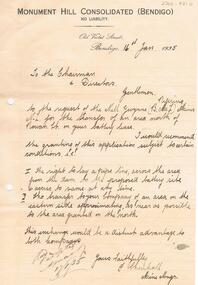 MONUMENT HILL CONSOLIDATED (BENDIGO)
NO LIABILITY.
Old Violet Street,
Bendigo, 16th Jan 1935
To the Chairman
& Directors.
Gentlemen.
Re the request of the
for the transfer of an area north of
St on your battery lease.
I would recommend
the granting of this application subject to certain
conditions I.E.
I The right to lay a pipe line, across the area
from the dam to the proposed battery site
& access to same at any time.
II The transfer to your Company of an area on the
side approximating, as near as possible
to the area granted on the North.
This exchange would be a distinct advantage to
both Companys.
Yours faithfully
Mine Mngr.